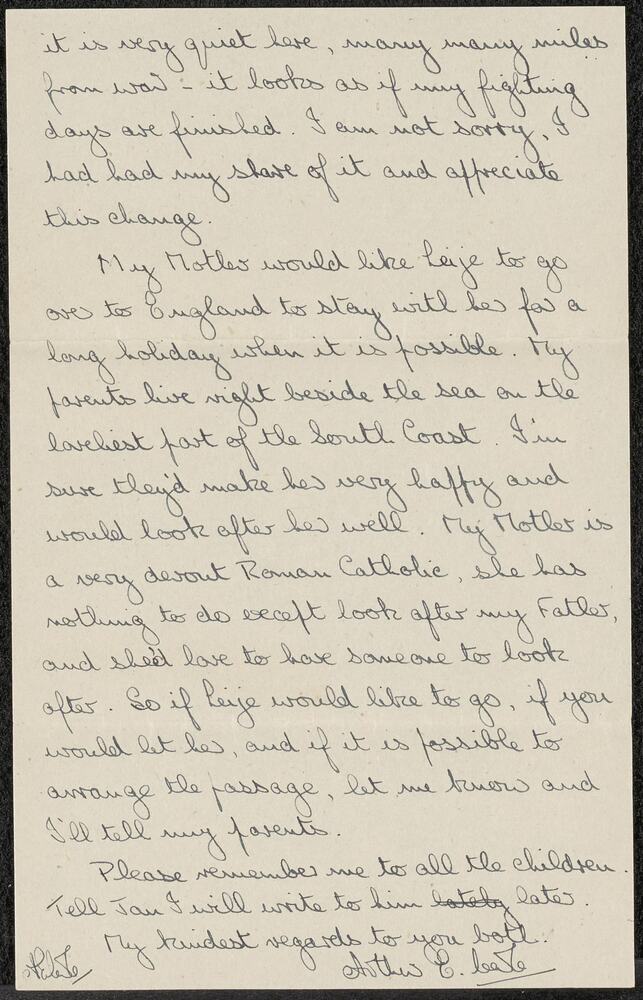 it is very quiet here, many many miles
from war - it looks as if my fighting
days are finished. I am not sorry, I
had had my share of it and appreciate
this change.
My Mother would like Leije to go
over to England to stay with her for a
long holiday when it is possible. My
parents live right beside the sea on the
loveliest part of the South Coast. I'm
sure they'd make her very happy and
would look after her well. My Mother is
a very devout Roman Catholic, she has
nothing to do except look after my Father,
and she'd love to have someone to look
after. So if Leije would like to go, if you
would let her, and if it is possible to
arrange the passage, let me know and
I'll tell my parents.
Please remember me to all the children.
Tell Jan I will write to him lately later.
My kindest regards to you both.
Arthur E.